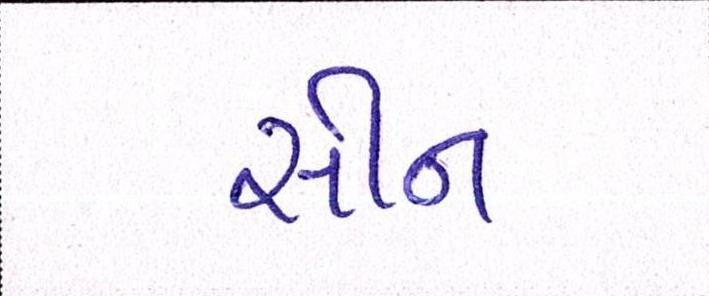 સીન